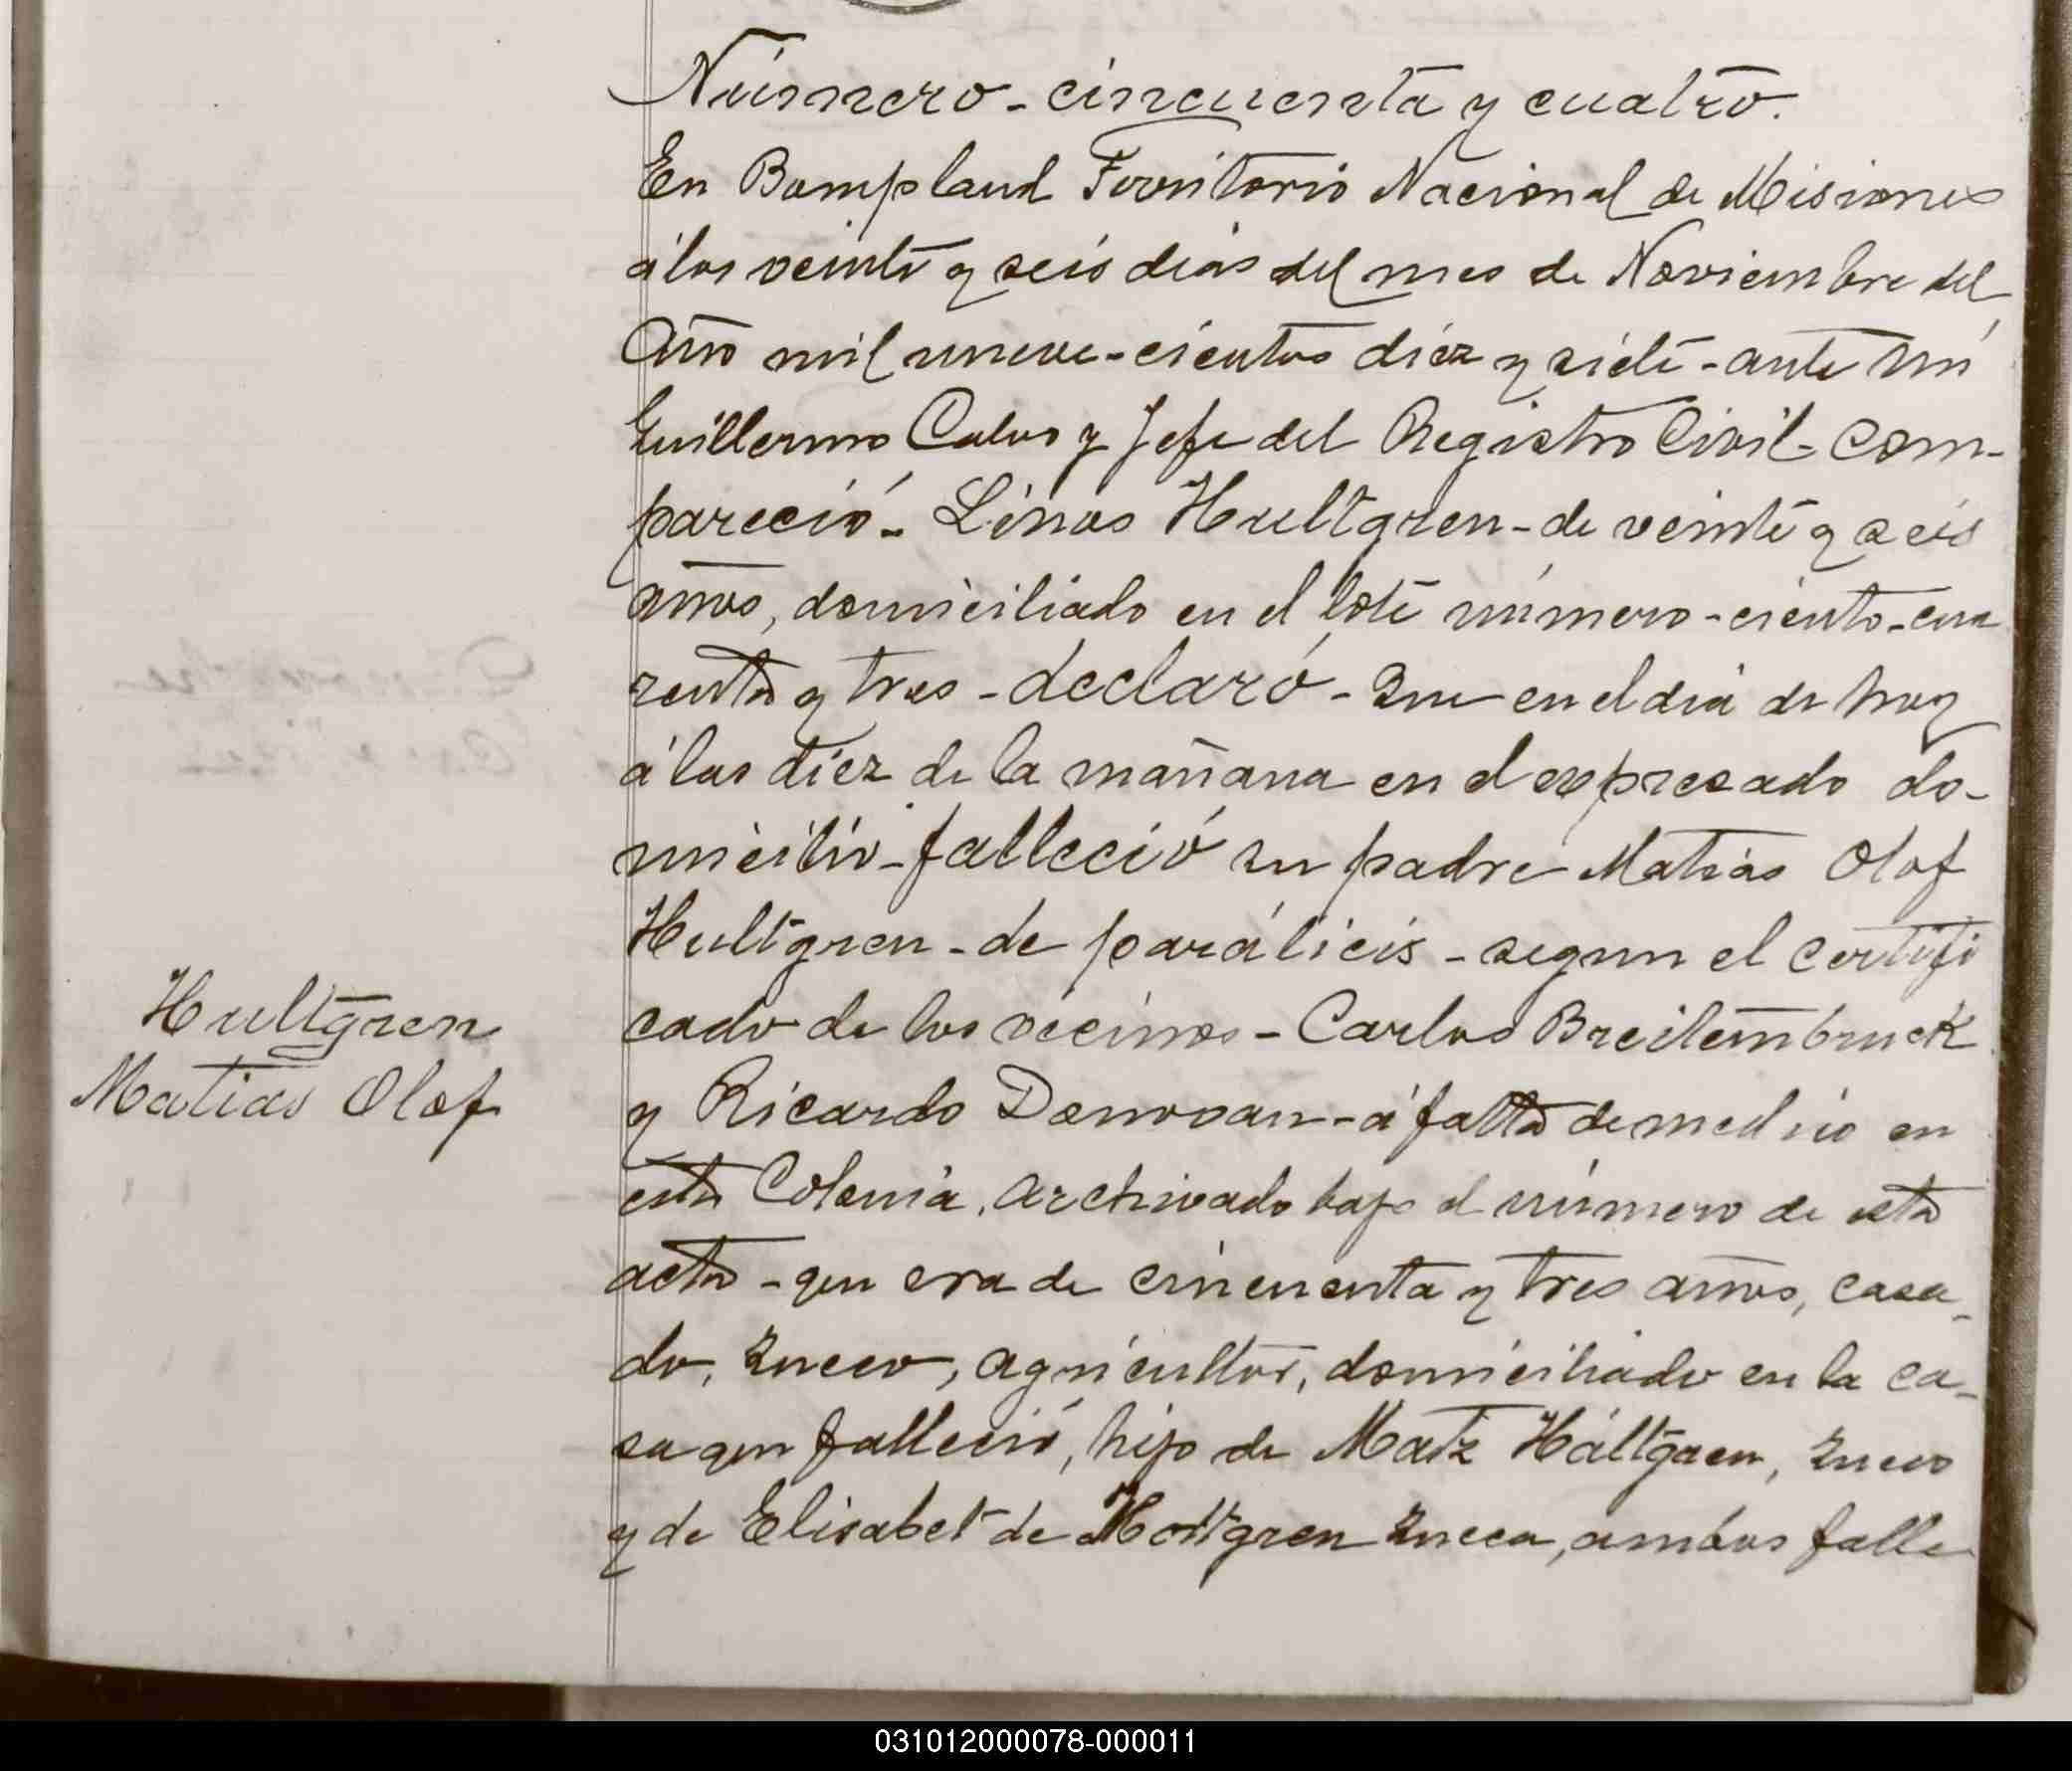 Número - cincuenta y cuatro.
En Bompland Territorio Nacional de Misiones
á los veinte y seis dias del mes de Noviembre del
Año mil nueve-cientos diez y siete - ante mí
Guillermo Calvo y Jefe del Registro Civil - com-
pareció - Linas Hultgren - de veinte y seis
años, domiciliado en el lote número - ciento - cua
renta y tres - declaró - Que en el dia de hoy
á las diez de la mañana en el expresado do-
micilio - falleció su padre Matias Olof
Hultgren - de parálicis - segun el certifi
cado de los vecinos - Carlos Breitembruck
y Ricardo Donovan - á falta de medico en
esta Colonia, archivado bajo el número de esta
acta - que era de cincuenta y tres años, casa-
do, Sueco, agricultor, domiciliado en la ca-
Hultgren
Matias Olof
sa que falleció, hijo de Matz Háltgren, Sueco
y de Elisabet de Holtgren Sueca, ambos falle
031012000078-000011